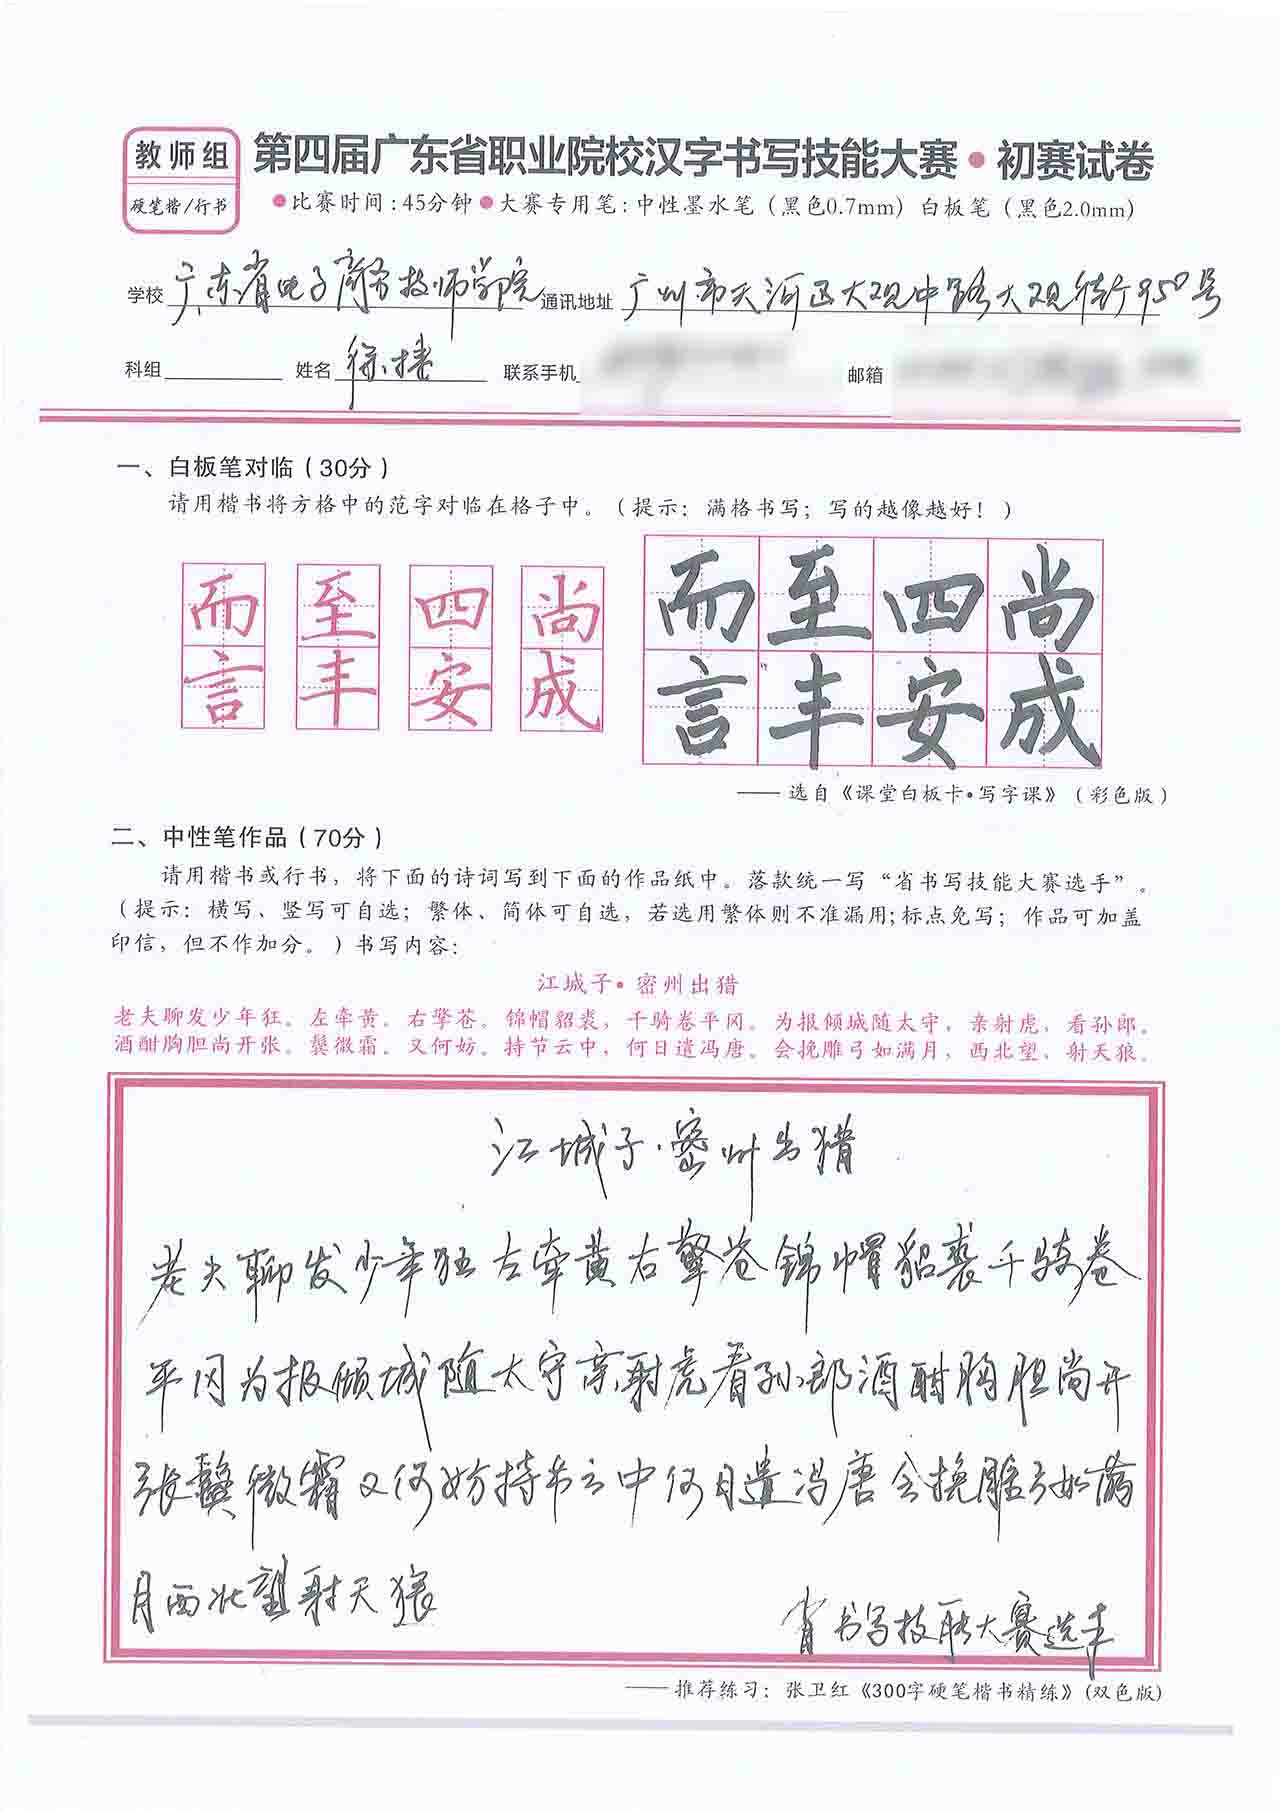 教师组
硬笔楷/行书
第四届广东省职业院校汉字书写技能大赛•初赛试卷
•比赛时间:45分钟•大赛专用笔:中性墨水笔(黑色0.7mm)白板笔(黑色2.0mm)
学校 广东省电子商务技师学院 通讯地址 广州市天河区大观中路大观街950号
科组 姓名 徐 联系手机 邮箱
一、白板笔对临(30分)
请用楷书将方格中的范字对临在格子中。(提示:满格书写;写的越像越好!)
而 至 四 尚 而至四尚
言 丰 安 成 言丰安成
——选自《课堂白板卡•写字课》(彩色版)
二、中性笔作品(70分)
请用楷书或行书,将下面的诗词写到下面的作品纸中。落款统一写“省书写技能大赛选手”。
(提示:横写、竖写可自选;繁体、简体可自选,若选用繁体则不准漏用;标点免写;作品可加盖
印信,但不作加分。)书写内容:
江城子•密州出猎
老夫聊发少年狂。左牵黄。右擎苍。锦帽貂裘,千骑卷平冈。为报倾城随太守,亲射虎,看孙郎。
酒酣胸胆尚开张。鬓微霜。又何妨。持节云中,何日遣冯唐。会挽雕弓如满月,西北望、射天狼。
江城子·密州出猎
老夫聊发少年狂左牵黄右擎苍锦帽貂裘千骑卷
平冈为报倾城随太守亲射虎看孙郎酒酣胸胆尚开
张鬓微霜又何妨持节云中何日遣冯唐会挽雕弓如满
月西北望射天狼
省书写技能大赛选手
——推荐练习:张卫红《300字硬笔楷书精练》(双色版)